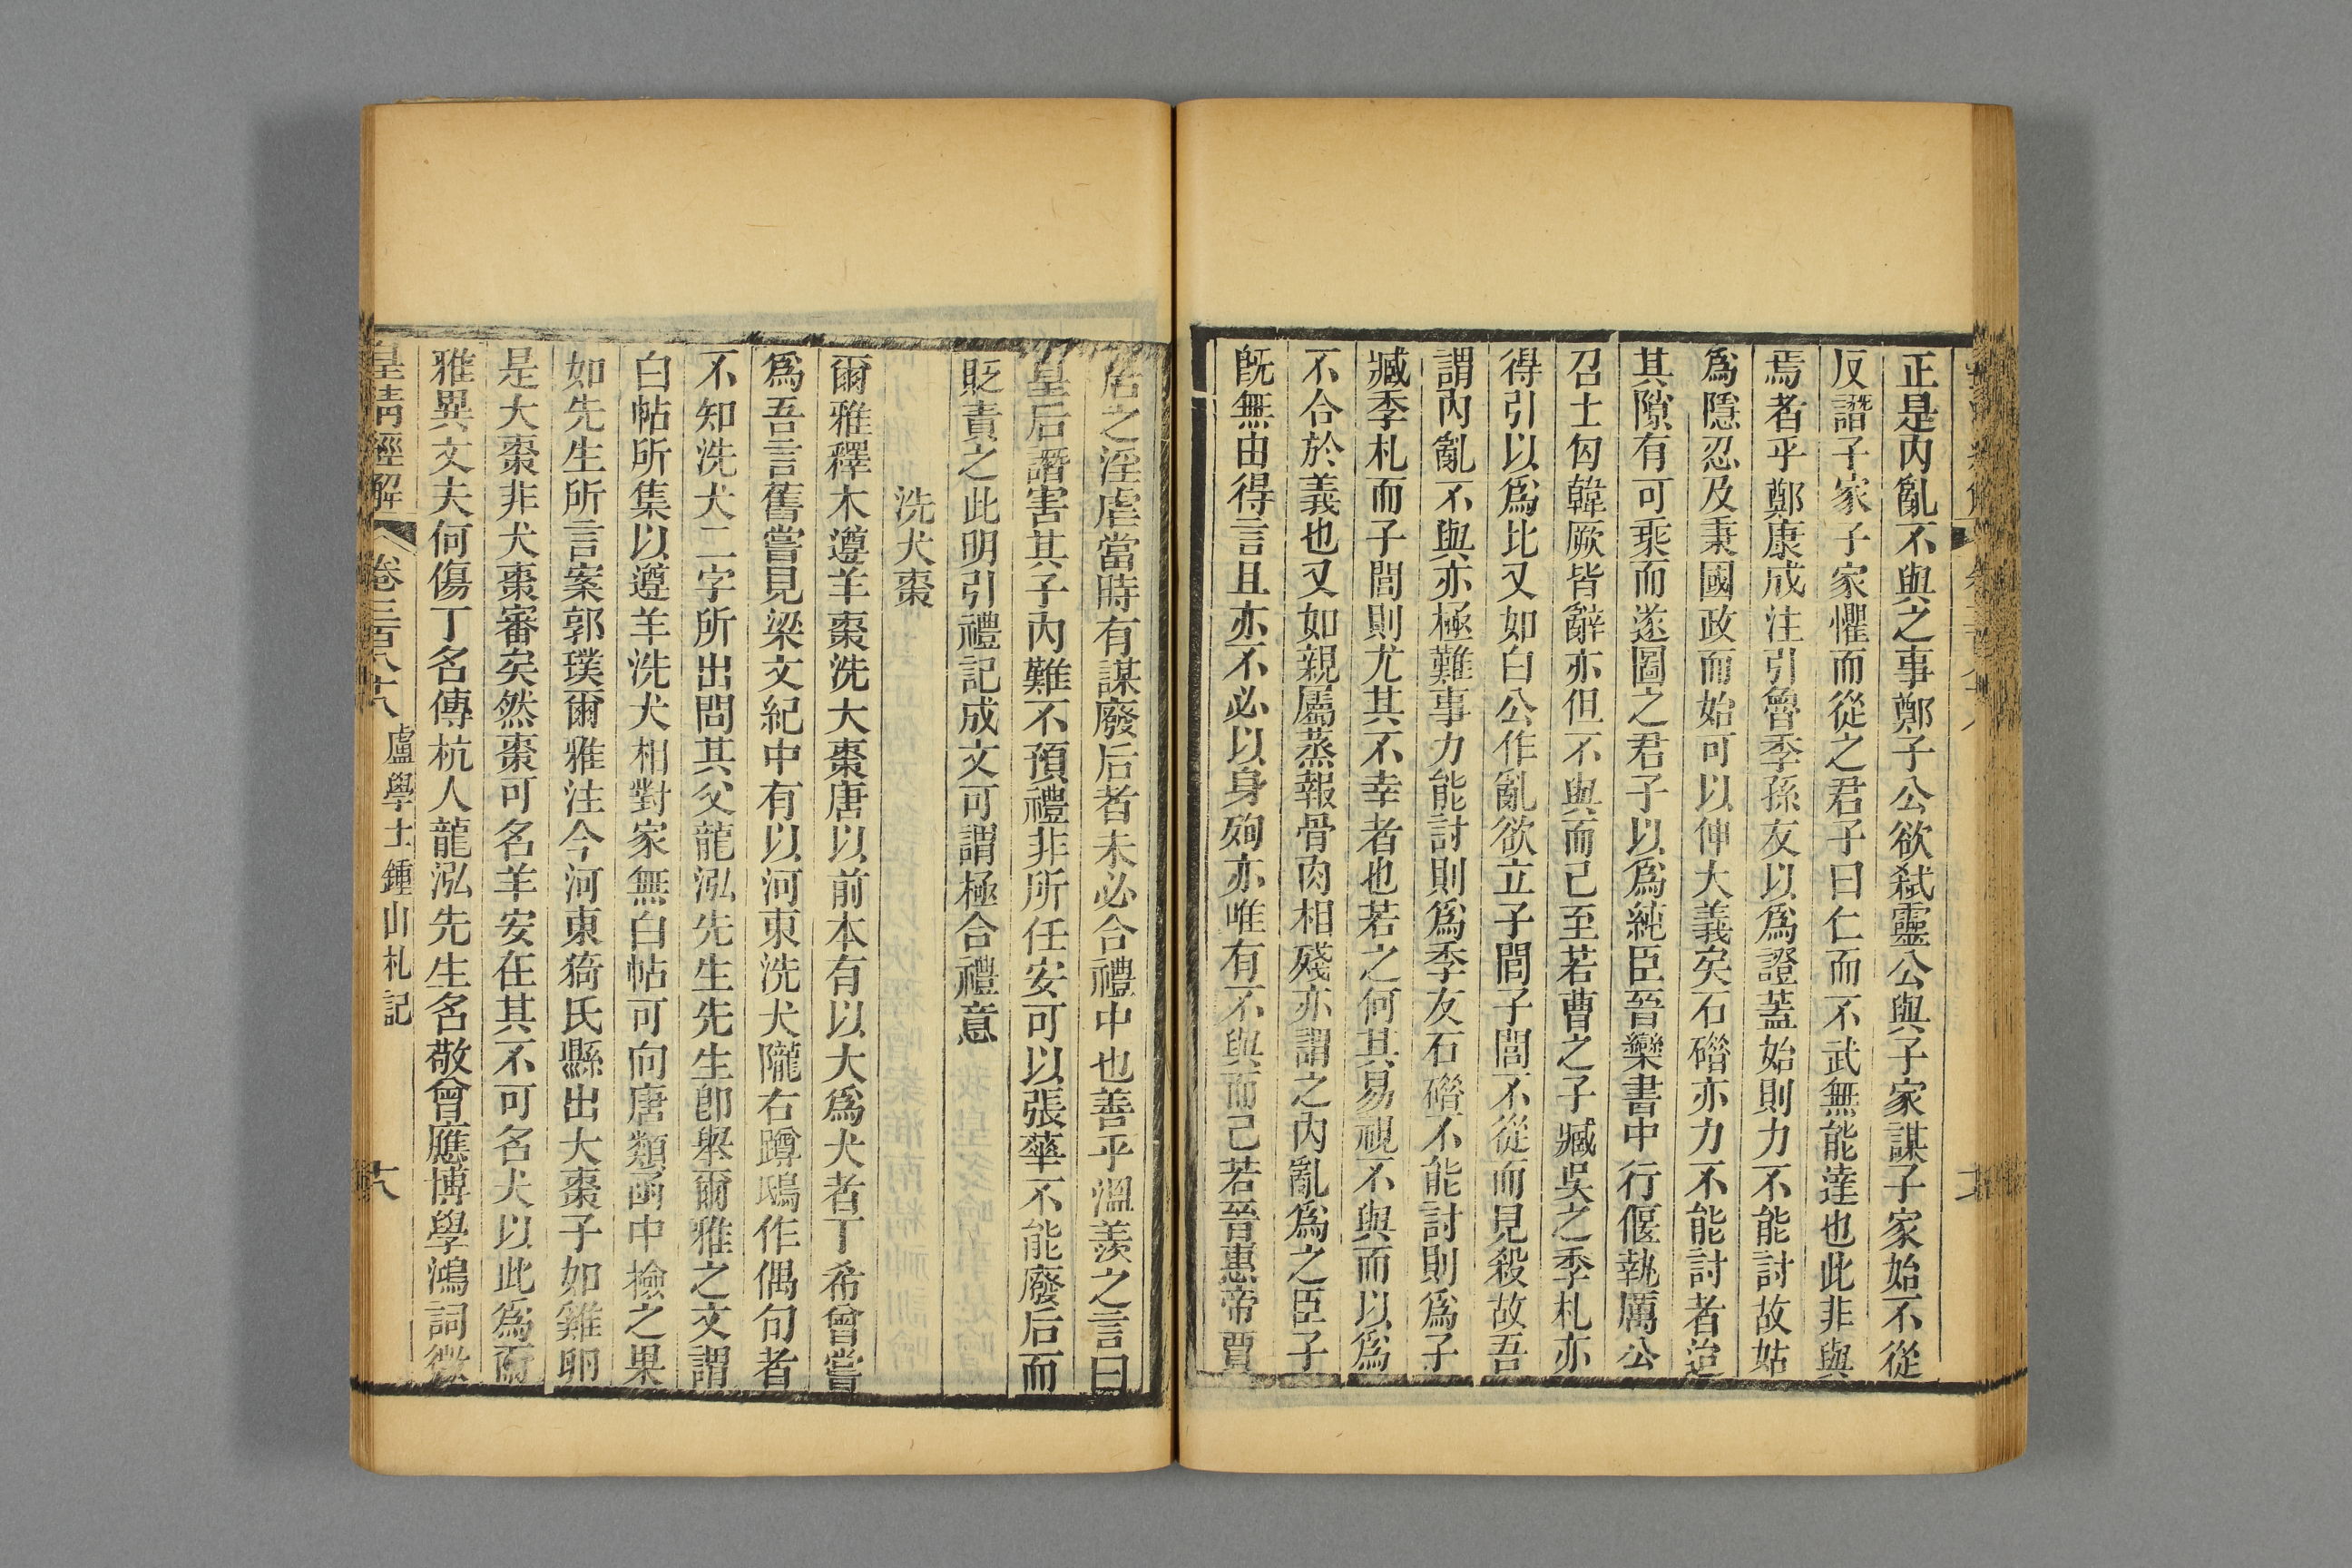 正是內亂不與之事鄭子公欲弑靈公與子家謀子家始不從
反譖子家子家懼而從之君子曰仁而不武無能達也此非與
焉者乎鄭康成注引魯季孫友以爲證蓋始則力不能討故姑
爲隱忍及秉國政而始可以伸大義矣石碏亦力不能討者迨
其隙有可乘而遂圖之君子以爲純臣晉欒書中行偃執厲公
召士匄韓厥皆辭亦但不與而已至若曹之子臧吳之季札亦
得引以爲比又如白公作亂欲立子閭子閭不從而見殺故吾
謂內亂不與亦極難事力能討則爲季友石碏不能討則爲子
臧季札而子閭則尤其不幸者也若之何其易視不與而以爲
不合於義也又如親屬蒸報骨肉相殘亦謂之內亂爲之臣子
旣無由得言且亦不必以身殉亦唯有不與而已若晉惠帝賈
后之淫虐當時有謀廢后者未必合禮中也善乎溫羨之言曰
皇后譖害其子內難不預禮非所任安可以張華不能廢后而
貶責之此明引禮記成文可謂極合禮意
洗犬棗
爾雅釋木遵羊棗洗大棗唐以前本有以大爲犬者丁希曾嘗
爲吾言舊嘗見梁文紀中有以河東洗犬隴右蹲鴟作偶句者
不知洗犬二字所出問其父龍泓先生先生卽舉爾雅之文謂
白帖所集以遵羊洗犬相對家無白帖可向唐類函中撿之果
如先生所言案郭璞爾雅注今河東猗氏縣出大棗子如雞卵
是大棗非犬棗審矣然棗可名羊安在其不可名犬以此爲爾
雅異文夫何傷丁名傳杭人龍泓先生名敬曾應博學鴻詞徵
皇淸經解 卷三百八十八 盧學士鍾山札記 十八